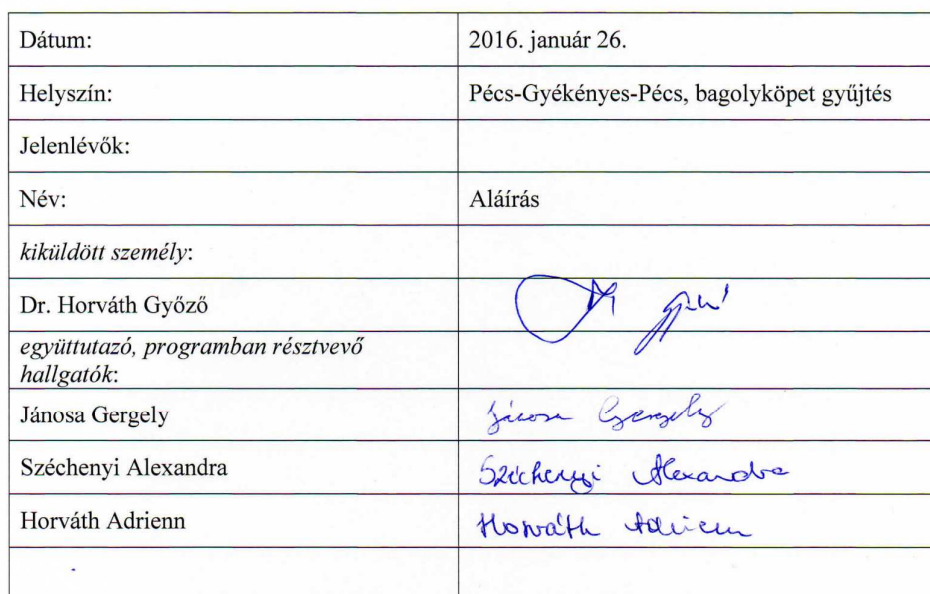 Dátum: 2016. január 26.
Helyszín: Pécs-Gyékényes-Pécs, bagolyköpet gyűjtés
Jelenlévők:
Név: Aláírás
kiküldött személy:
Dr. Horváth Győző
együttutazó, programban résztvevő
hallgatók:
Jánosa Gergely Jánosa Gergely
Széchenyi Alexandra Széchenyi Alexandra
Horváth Adrienn Horváth Adrienn